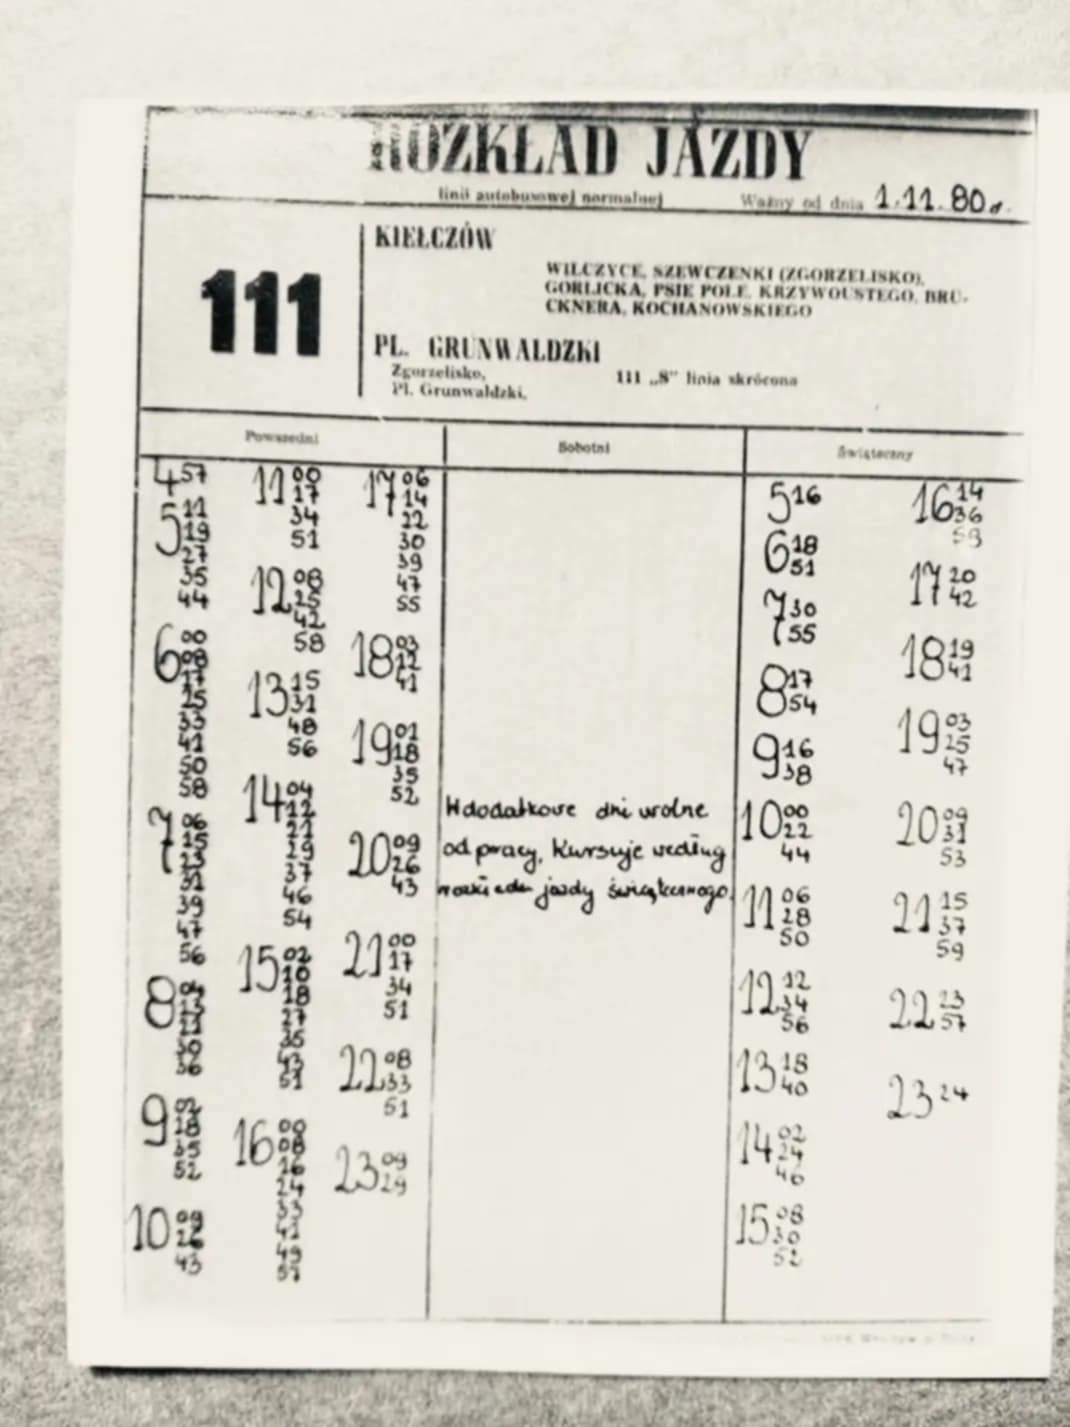 ROZKŁAD JAZDY
linii autobusowej normalnej Ważny od dnia 1.11.80 r.
111
KIEŁCZÓW
WILCZYCE, SZEWCZENKI (ZGORZELISKO),
GORLICKA, PSIE POLE, KRZYWOUSTEGO, BRU-
CKNERA, KOCHANOWSKIEGO
PL. GRUNWALDZKI
Zgorzelisko, 111 „S” linia skrócona
Pl. Grunwaldzki.
Powszedni Sobotni Świąteczny
4 57
5 11
19
27
35
44
6 00
08
17
25
33
41
50
58
7 06
15
23
31
39
47
56
8 04
13
22
30
36
9 02
18
35
52
10 09
26
43
11 00
17
34
51
12 08
25
42
58
13 15
31
48
56
14 04
12
21
29
37
46
54
15 02
10
18
27
35
43
51
16 00
08
16
24
33
41
49
57
17 06
14
22
30
39
47
55
18 03
12
41
19 01
18
35
52
20 09
26
43
21 00
17
34
51
22 08
33
51
23 09
29
W dodatkowe dni wolne
od pracy, kursuje według
jazdy świątecznego.
5 16
6 18
51
7 30
55
8 17
54
9 16
38
10 00
22
44
11 06
28
50
12 12
34
56
13 18
40
14 02
24
46
15 08
30
52
16 14
36
58
17 20
42
18 19
41
19 03
25
47
20 09
31
53
21 15
37
59
22 23
57
23 24